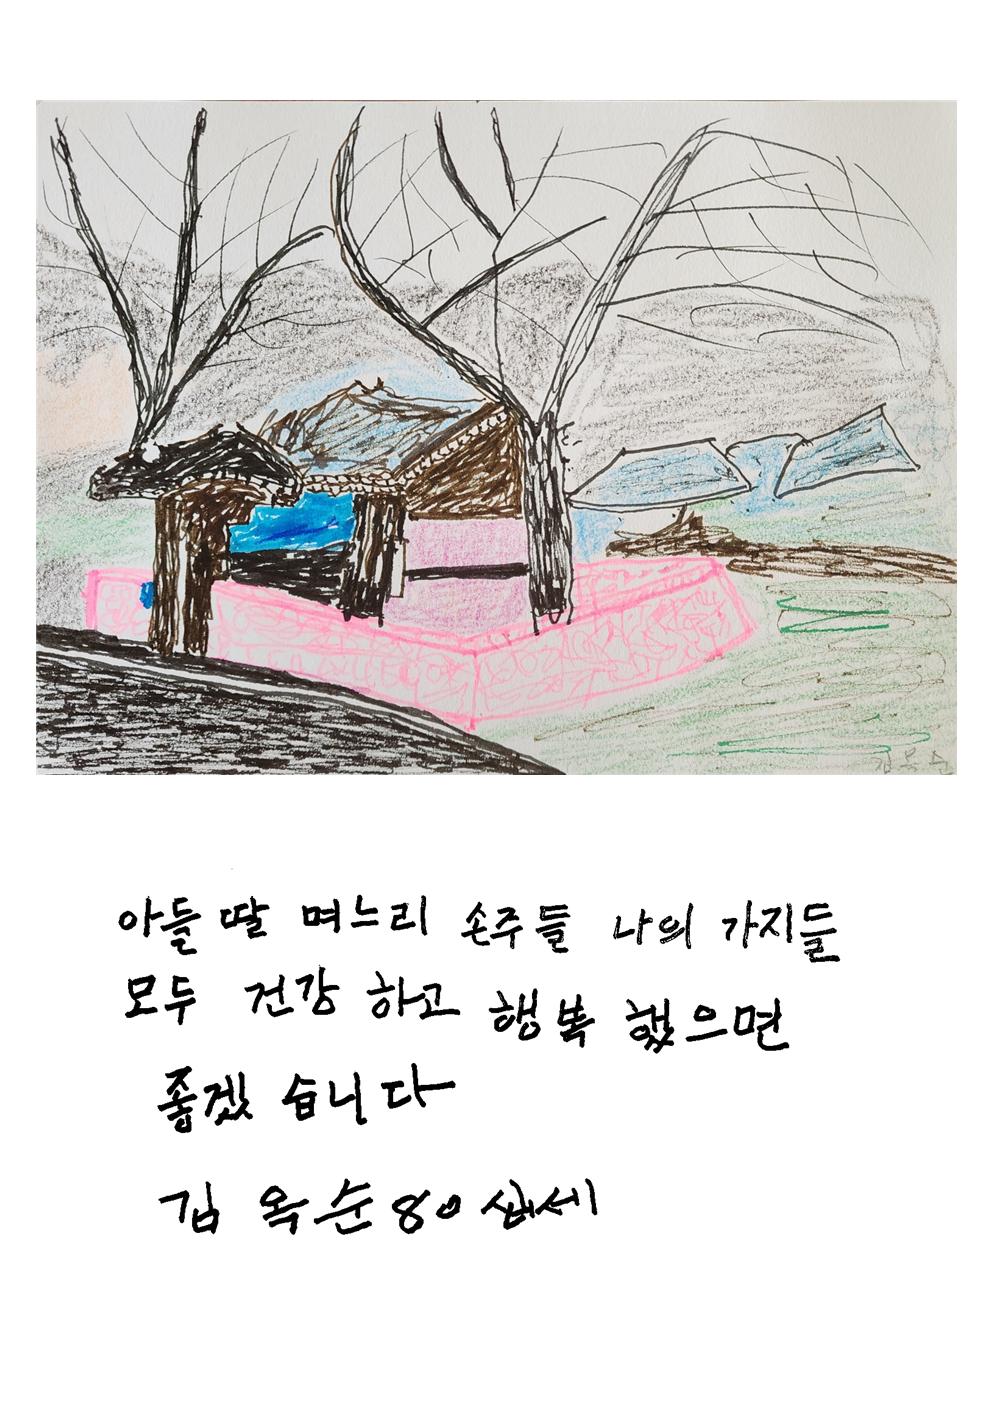 김옥순
아들 딸 며느리 손주들 나의 가지들
모두 건강 하고 행복 했으면
좋겠 습니다
김 옥순 80 세